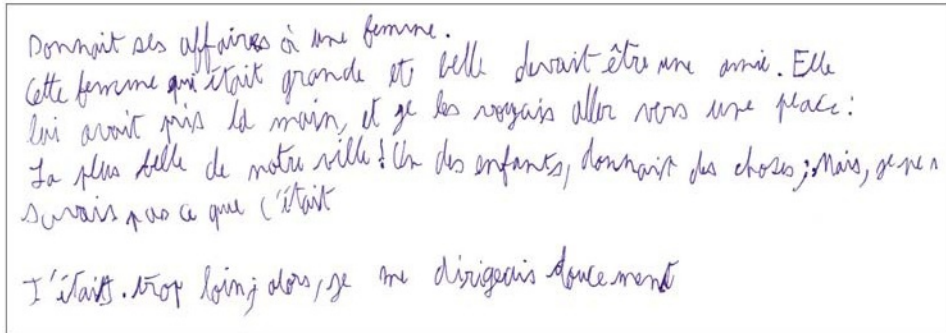 Donnait ses affaires à une femme.
Cette femme qui était grande et belle devait être une amie. Elle
lui avait pris la main, et je les voyais aller vers une place:
La plus belle de notre ville! Un des enfants, donnait des choses; Mais, je ne
savais pas ce que c'était
J'étais. trop loin; alors, je me dirigeais doucement